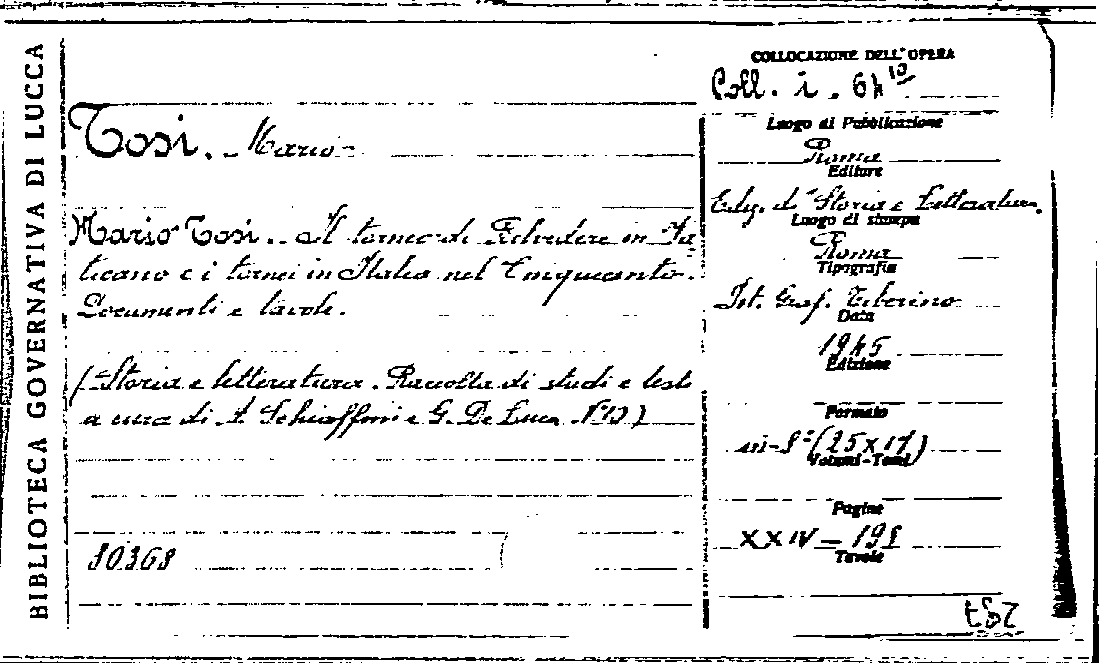 BIBLIOTECA GOVERNATIVA DI LUCCA
Tosi. Mario
Mario Tosi. Il torneo di Belvedere in Va
ticano e i tornei in Italia nel Cinquecento.
Documenti e tavole.
(Storia e letteratura. Raccolta di studi e testi
a cura di A. Schiaffini e G. De Luca.
80368
COLLOCAZIONE DELL'OPERA
Coll. i. 64 10
Luogo di Pubblicazione
Roma
Editore
Ediz. di "Storia e Letteratura"
Luogo di stampa
Roma
Tipografia
Ist. Graf. Tiberino
Data
1945
Edizione
Formato
in-8° (25x17)
Volumi-Tomi
Pagine
XXIV - 198
Tavole